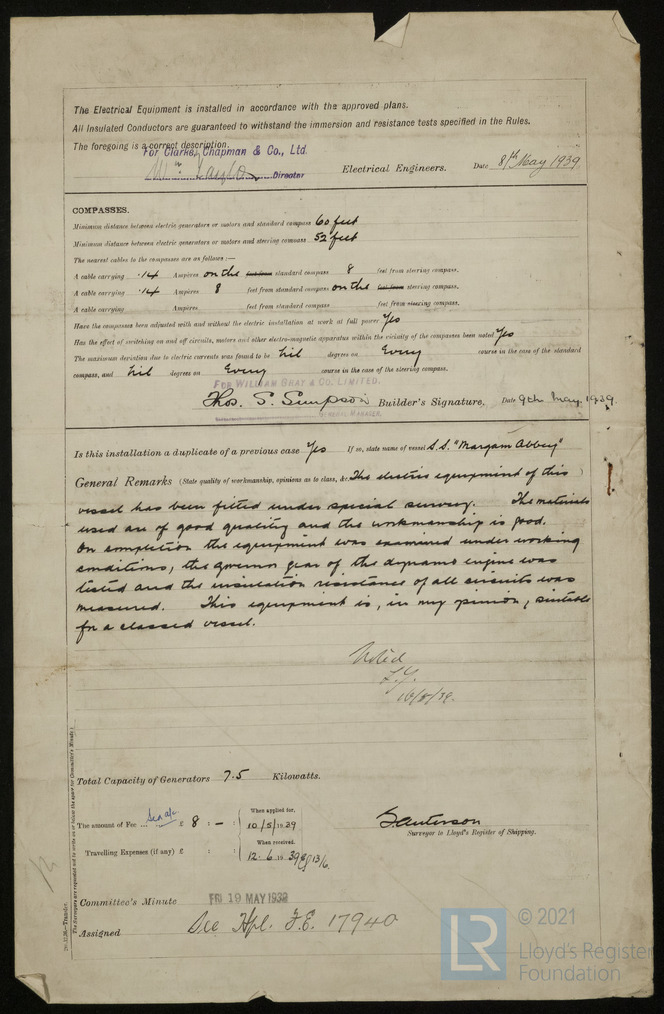 The Electrical Equipment is installed in accordance with the approved plans.
All Insulated Conductors are guaranteed to withstand the immersion and resistance tests specified in the Rules.
The foregoing is a correct description.
For Clarke, Chapman & Co., Ltd.
Director Electrical Engineers. Date 8th May 1939
COMPASSES.
Minimum distance between electric generators or motors and standard compass 60 feet
Minimum distance between electric generators or motors and steering compass 52 feet
The nearest cables to the compasses are as follows:—
A cable carrying .14 Ampères on the standard compass 8 feet from steering compass.
A cable carrying .14 Ampères 8 feet from standard compass on the steering compass.
A cable carrying Ampères feet from standard compass feet from steering compass.
Have the compasses been adjusted with and without the electric installation at work at full power Yes
Has the effect of switching on and off circuits, motors and other electro-magnetic apparatus within the vicinity of the compasses been noted Yes
The maximum deviation due to electric currents was found to be Nil degrees on Every course in the case of the standard
compass, and Nil degrees on Every course in the case of the steering compass.
FOR WILLIAM GRAY & CO. LIMITED.
Thos. S. Simpson Builder's Signature. Date 9th May 1939
GENERAL MANAGER.
Is this installation a duplicate of a previous case Yes If so, state name of vessel S.S. "Margam Abbey"
General Remarks (State quality of workmanship, opinions as to class, &c. The electric equipment of this
vessel has been fitted under special survey. The materials
used are of good quality and the workmanship is good.
On completion the equipment was examined under working
conditions, the governor gear of the dynamo engine was
tested and the insulation resistance of all circuits was
measured. This equipment is, in my opinion, suitable
for a classed vessel.
Noted
16/5/39.
Total Capacity of Generators 7.5 Kilowatts.
The amount of Fee £ 8 : – : When applied for, 10/5/1939
Travelling Expenses (if any) £ : : When received, 12.6.1939
Surveyor to Lloyd's Register of Shipping.
Committee's Minute FRI 19 MAY 1939
Assigned See Hpl. F.E. 17940
The Surveyors are requested not to write on or below the space for Committee's Minute.
© 2021
LR
Lloyd's Register
Foundation